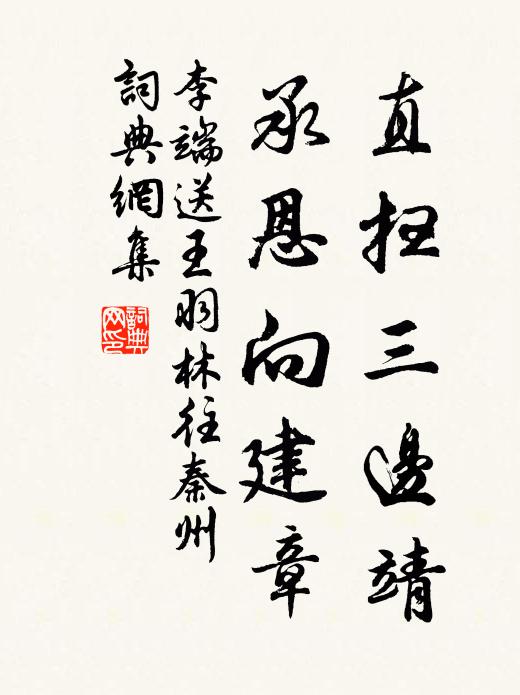 直扫三邊靖
承恩向建章
李端送王羽林往秦州
詞典網集
詞典
网印